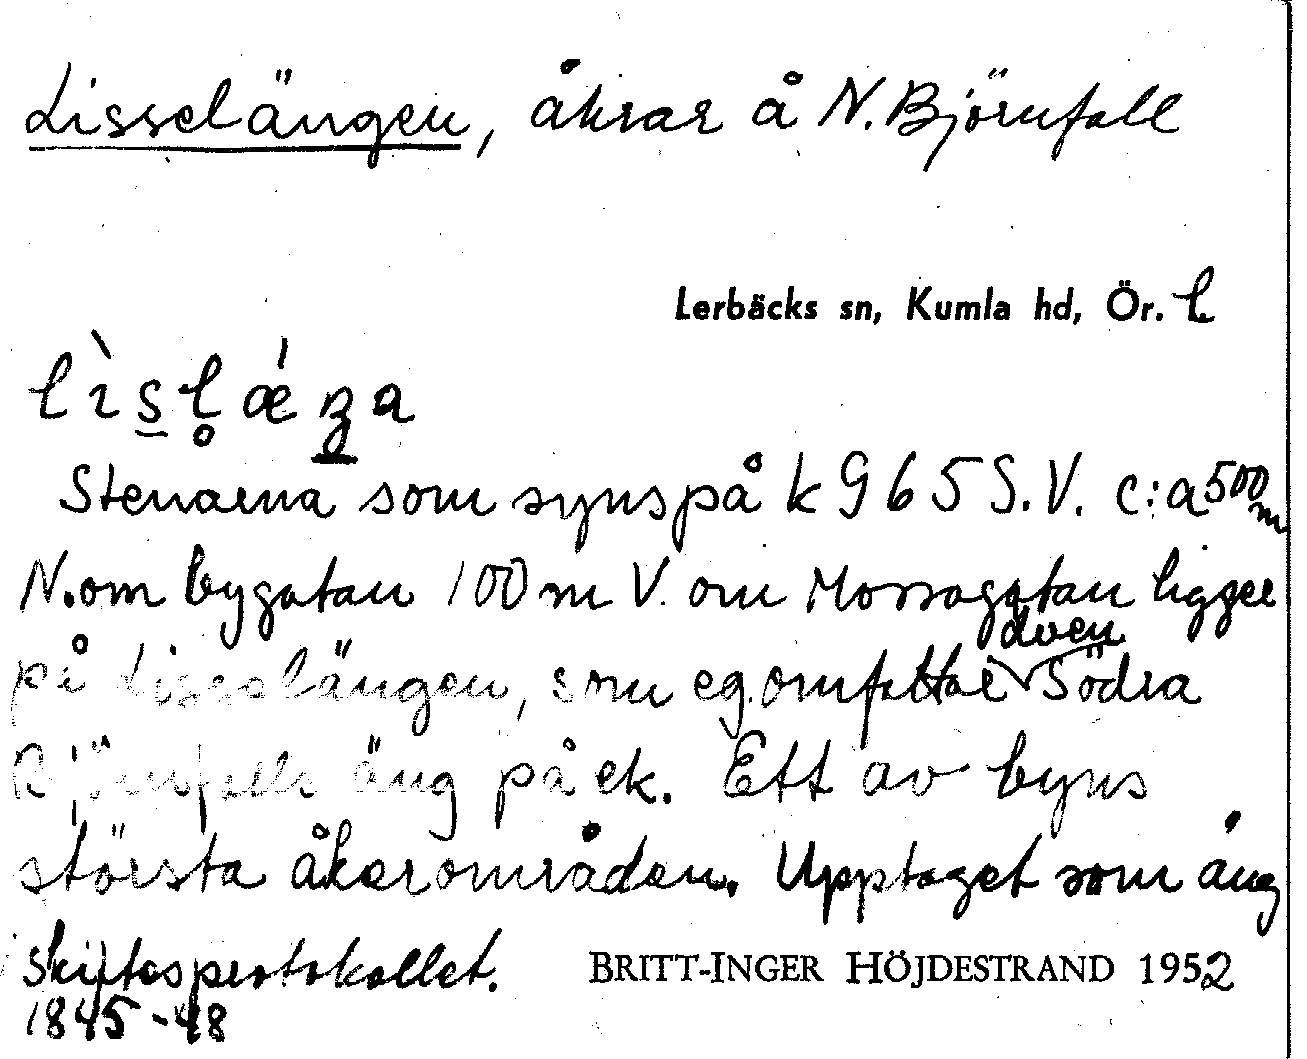 Lisselängen, åkrar å N. Björnfall
Lerbäcks sn, Kumla hd, Ör. l.
Stenarna som syns på k 965 S.V. c:a 500 m
N. om bygatan 100 m V. om Morragatan ligger
på Lisselängen, som eg. omfattar även Södra
Björnfalls äng på ek. Ett av byns
största åkerområden. Upptaget som äng
skiftesprotokollet.
1845-48
BRITT-INGER HÖJDESTRAND 1952